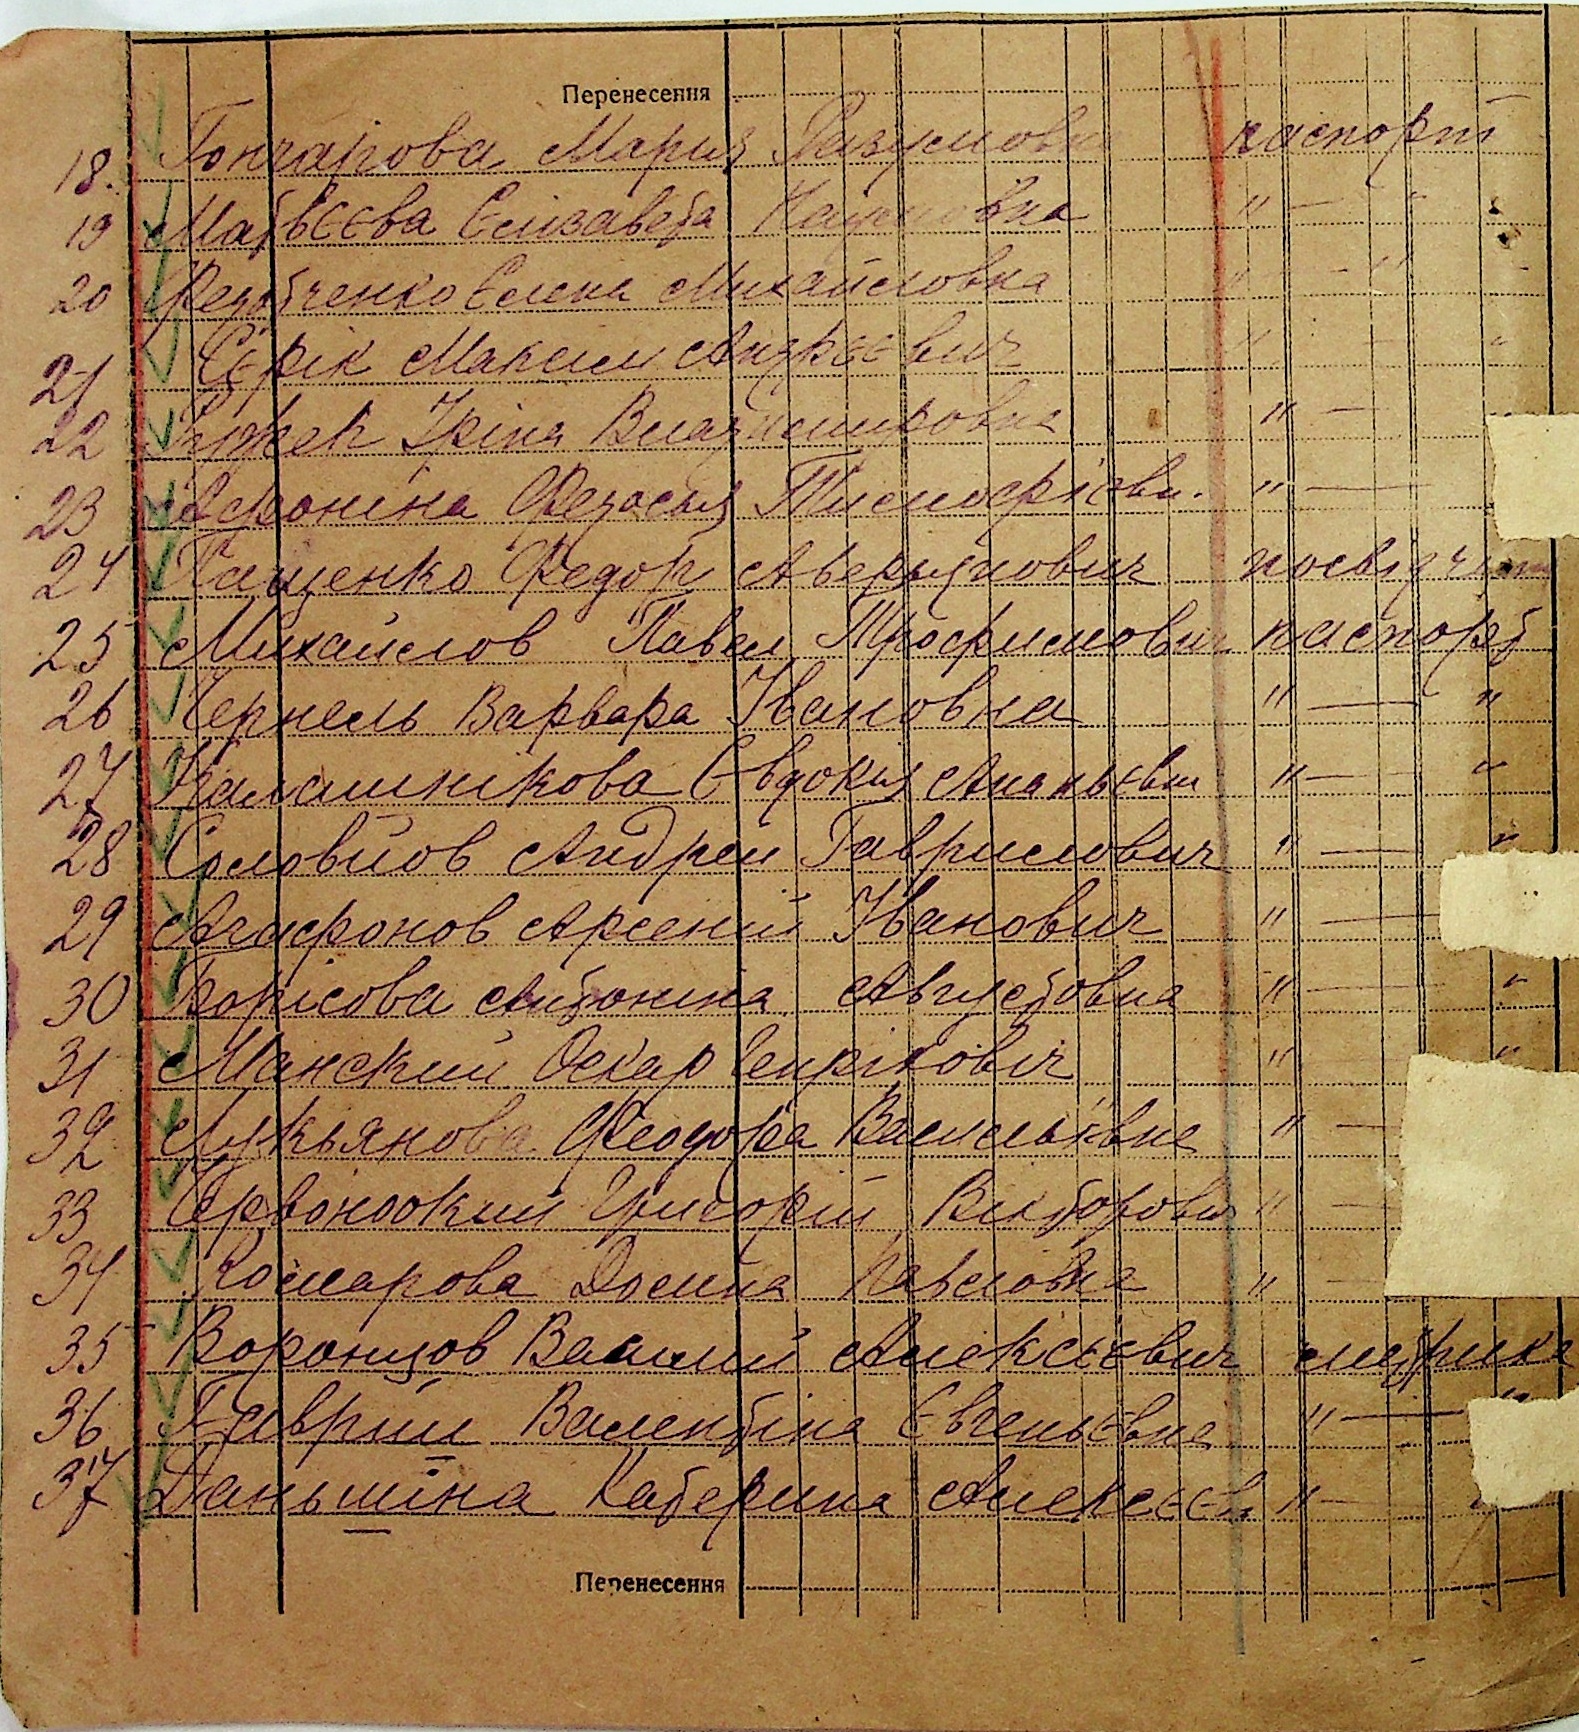 Перенесення
18. Гончарова Мария Разумовна паспорт
19 Матвєєва Єлізавета Наумовна " — "
20 Федотченко Єлена Михайловна " — "
21 Сєрік Максим Андрєєвич " "
22 Ірина Владимировна " —
23 Афоніна Федосья Тимофієвн. " —
24 Пащенко Федор Аверьянович посвідчення
25 Михайлов Павел Трофимович паспорт
26 Чернель Варвара Івановна " — "
27 Калашнікова Євдокия Ананьєвн " — "
28 Соловйов Андрей Гаврилович " — "
29 Агафонов Арсений Іванович " —
30 Борісова Антоніна Августовна " — "
31 Манский Оскар Генріхович " "
32 Лукьянова Феодора Васильївна " —
33 Червоноокий Григорій Викторович " —
34 Комарова Домна Павловна " —
35 Воронцов Василий Алексєєвич метрика
36 Гаврий Валентіна Євгеньєвна " — "
37 Даньшіна Катерина Алексєєвн " — "
Перенесення